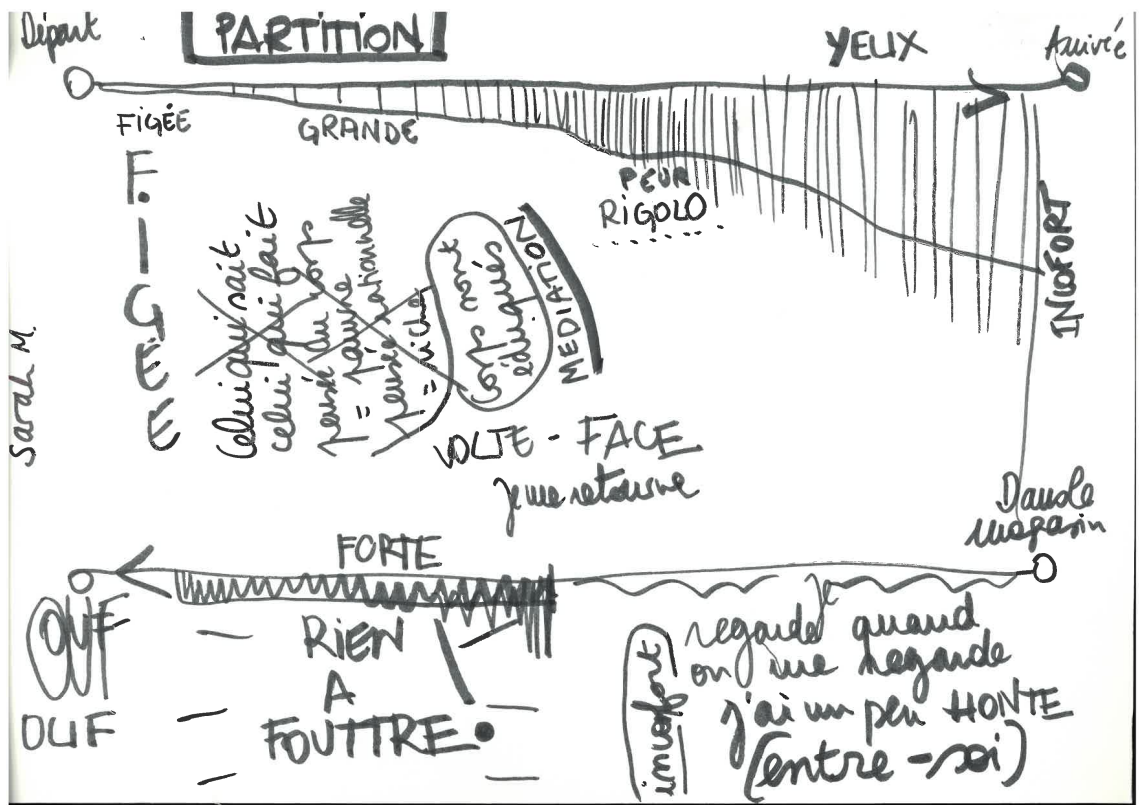 Départ
PARTITION
YEUX
Arrivée
FIGÉE
GRANDE
F.IGÉE
PEUR
RiGOLO
INCOFORT
Celui qui sait
celui qui fait
pensée du corps
= pauvre
pensée rationnelle
= riche
corps
éduqués
MEDIATION
Sarah M.
VOLTE - FACE
je me retourne
Dans le
magasin
FORTE
OUF
OUF
RiEN
A
FOUTTRE.
incofort
je
regarde quand
on me regarde
j'ai un peu HONTE
(entre-soi)